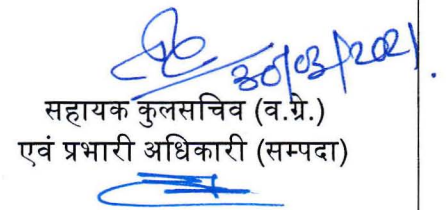 30/03/2021.
सहायक कुलसचिव (व.ग्रे.)
एवं प्रभारी अधिकारी (सम्पदा)